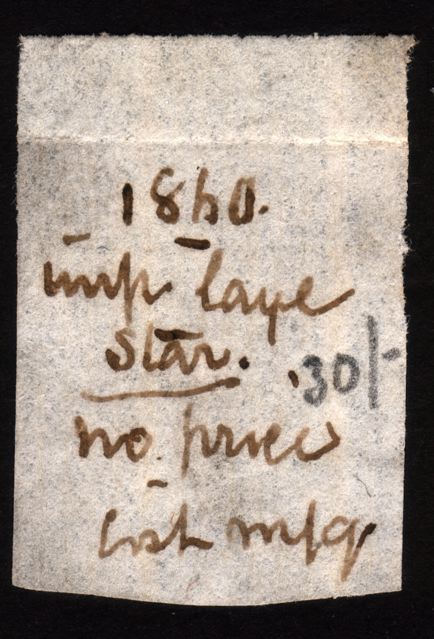 1860.
imp large
Star.
30/-
no price
list mfg